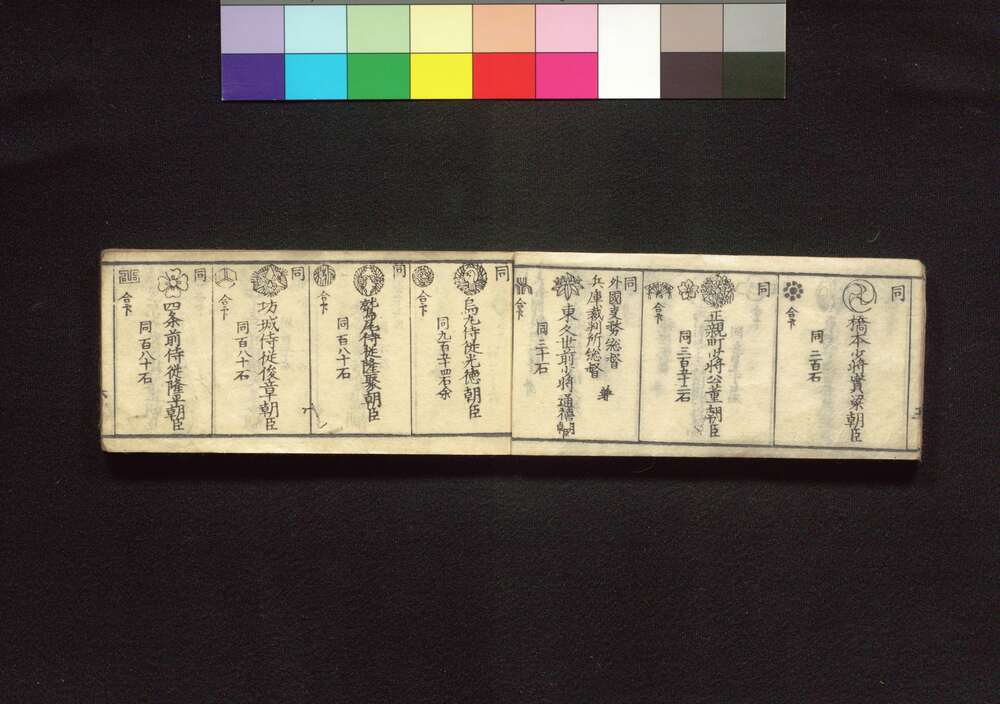 同
橋本少将實梁朝臣
同 二百石
同
正親町少将公董朝臣
同 三百五十二石
同
外國事務総督
兵庫裁判所総督 兼
東久世前少将通禧朝臣
同 三十石
同
烏丸侍従光徳朝臣
同 九百五十四石余
同
鷲尾侍従隆聚朝臣
同 百八十石
同
坊城侍従俊章朝臣
同 百八十石
同
四条前侍従隆平朝臣
同 百八十石